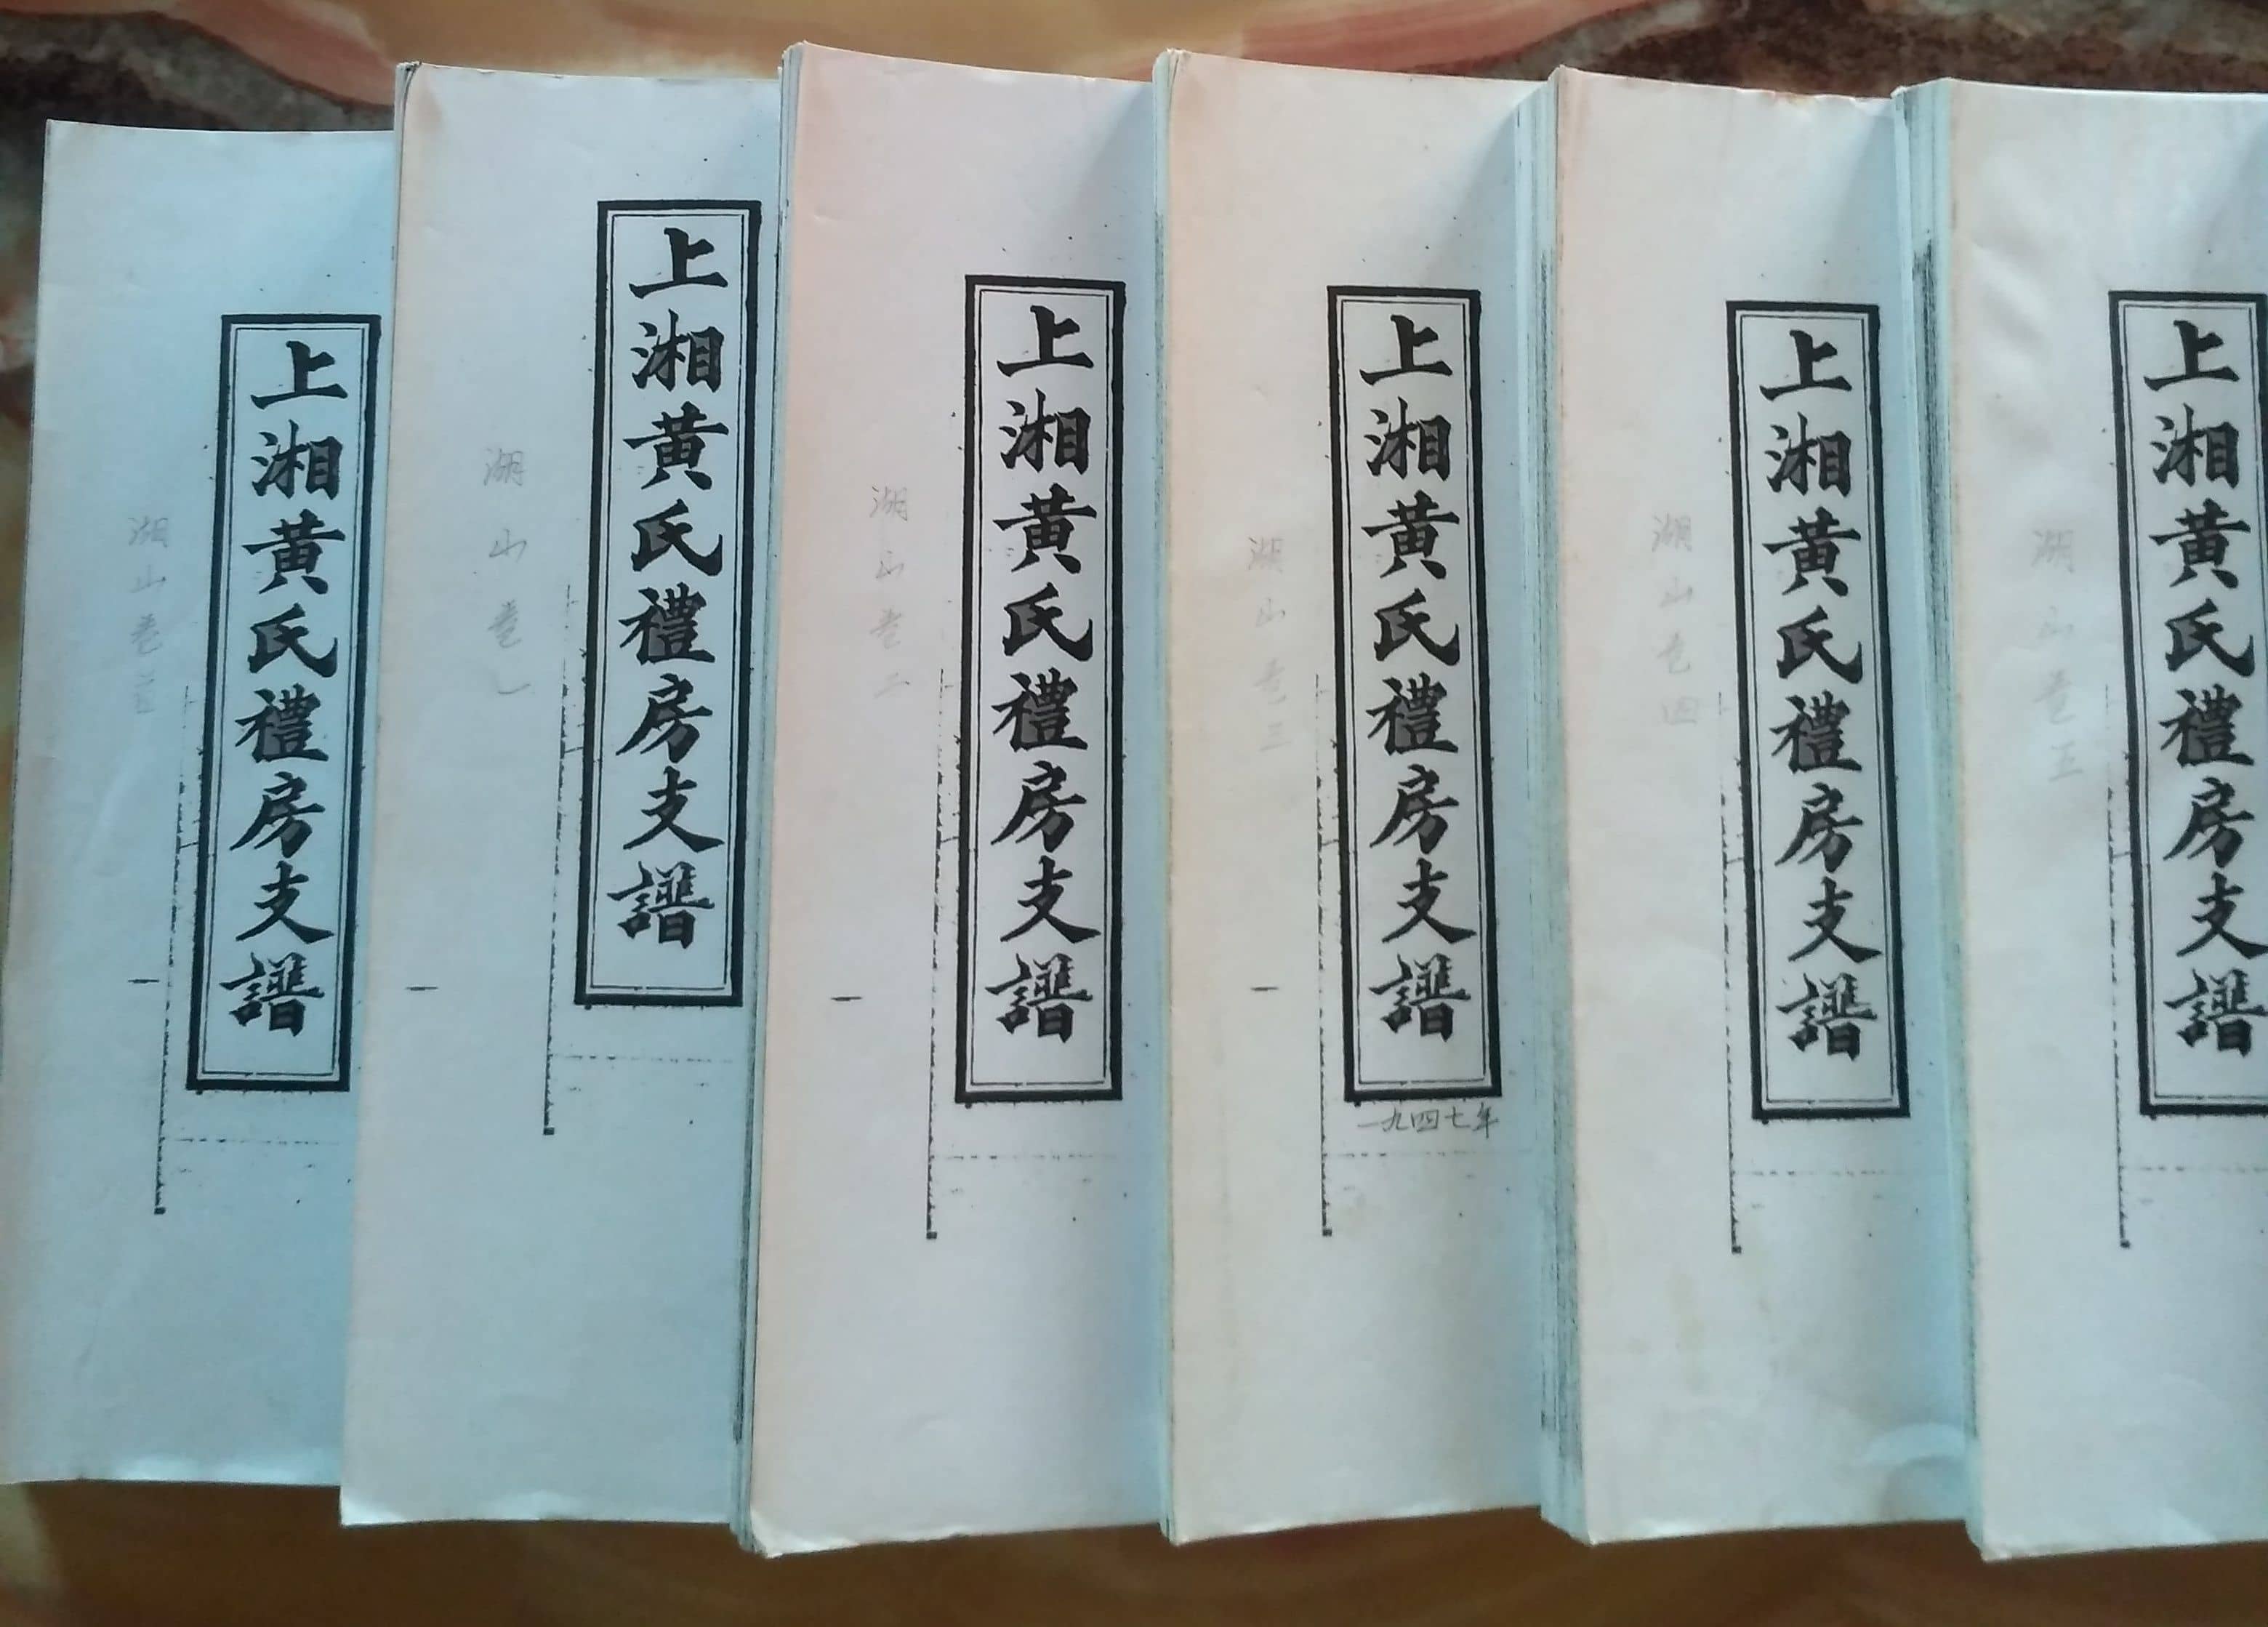 上湘黄氏禮房支譜
湖山卷首
上湘黄氏禮房支譜
湖山卷一
上湘黄氏禮房支譜
湖山卷二
上湘黄氏禮房支譜
湖山卷三
一九四七年
上湘黄氏禮房支譜
湖山卷四
上湘黄氏禮房支譜
湖山卷五